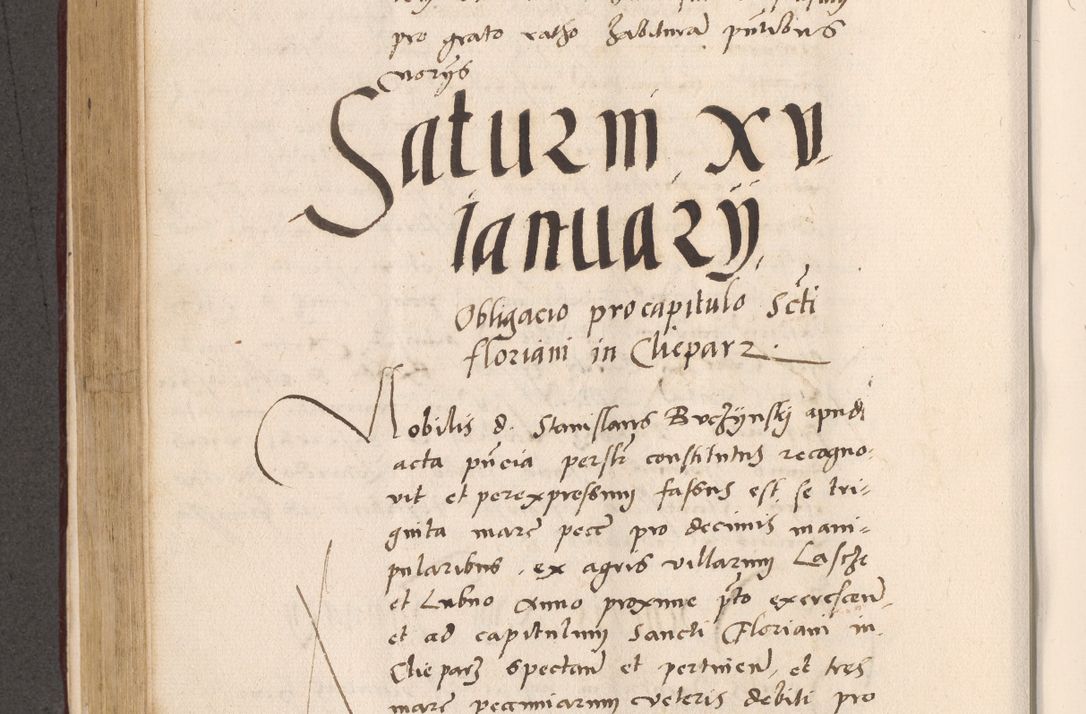 pro grato ratho habitura pñtibus
Noxijs
Saturni XV
Ianuarÿ
Obligacio pro capitulo Scti
floriani in Clieparz
Nobilis d. Stanislaus Buczÿnskÿ apud
acta pñcia persłr constitutus recogno-
vit et per expressum fassus est, se tri-
ginta marc pecc pro decimis mani-
pularibus, ex agris villarum Lasche
et Lubno Anno proxime pto excrescen
et ad capitulum Sancti Floriani in
Clieparz spectan et pertinen, et tres
marc pecuniarum veteris debiti pro